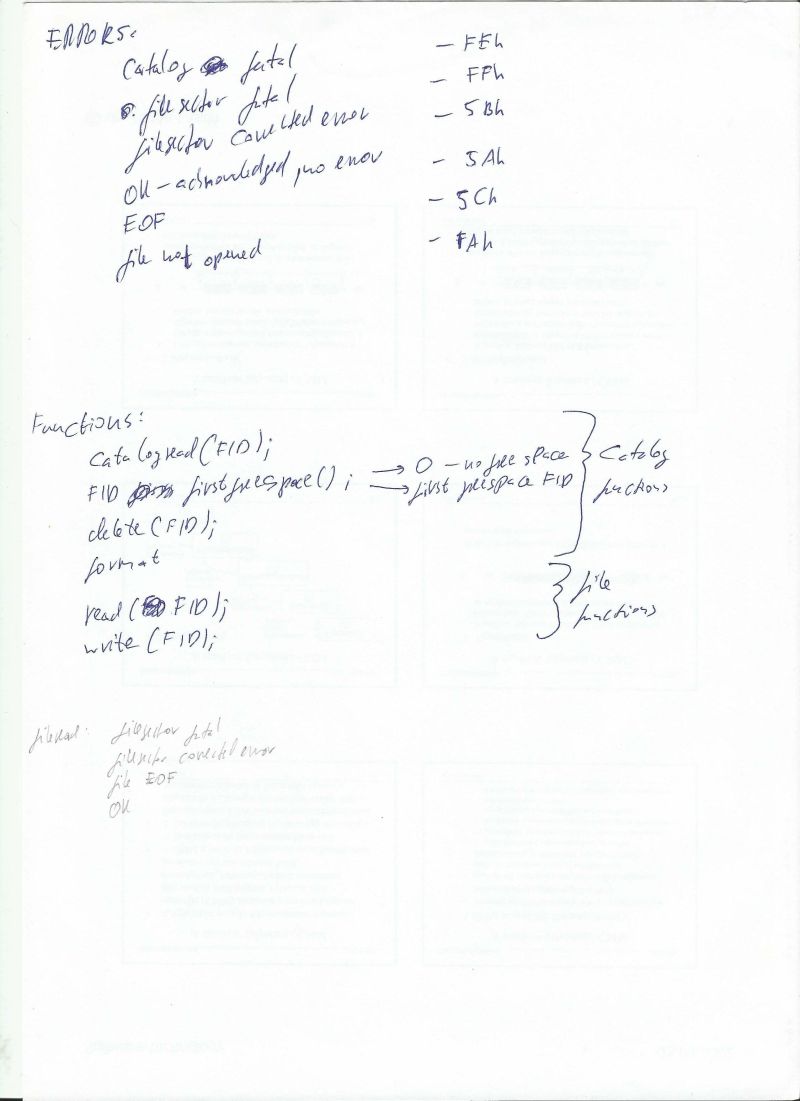 ERRORS:
Catalog fatal - FEh
filesector fatal - FFh
filesector corrected error - 5Bh
OK - acknowledged, no error - 5Ah
EOF - 5Ch
file not opened - FAh
Functions:
catalogread (FID);
FID firstfreespace(); → 0 - no free space
→ first freespace FID
Catalog
functions
delete (FID);
format
read (FID);
write (FID);
file
functions
fileread: filesector fatal
filesector corrected error
file EOF
OK